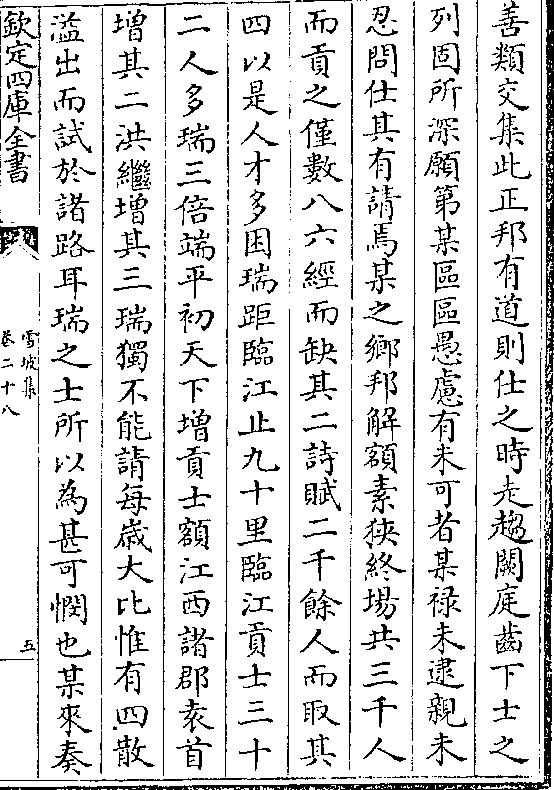 善類交集此正邦有道則仕之時走趨闕庭齒下士之
列固所深願第某區區愚慮有未可者某禄未逮親未
忍問仕其有請焉某之鄉邦解額素狹終場共三千人
而貢之僅數八六經而缺其二詩賦二千餘人而取其
四以是人才多困瑞距臨江止九十里臨江貢士三十
二人多瑞三倍端平初天下增貢士額江西諸郡袁首
增其二洪繼增其三瑞獨不能請每歲大比惟有四散
濫出而試於諸路耳瑞之士所以為甚可憫也某來奏
欽定四庫全書
雪坡集
卷二十八
五